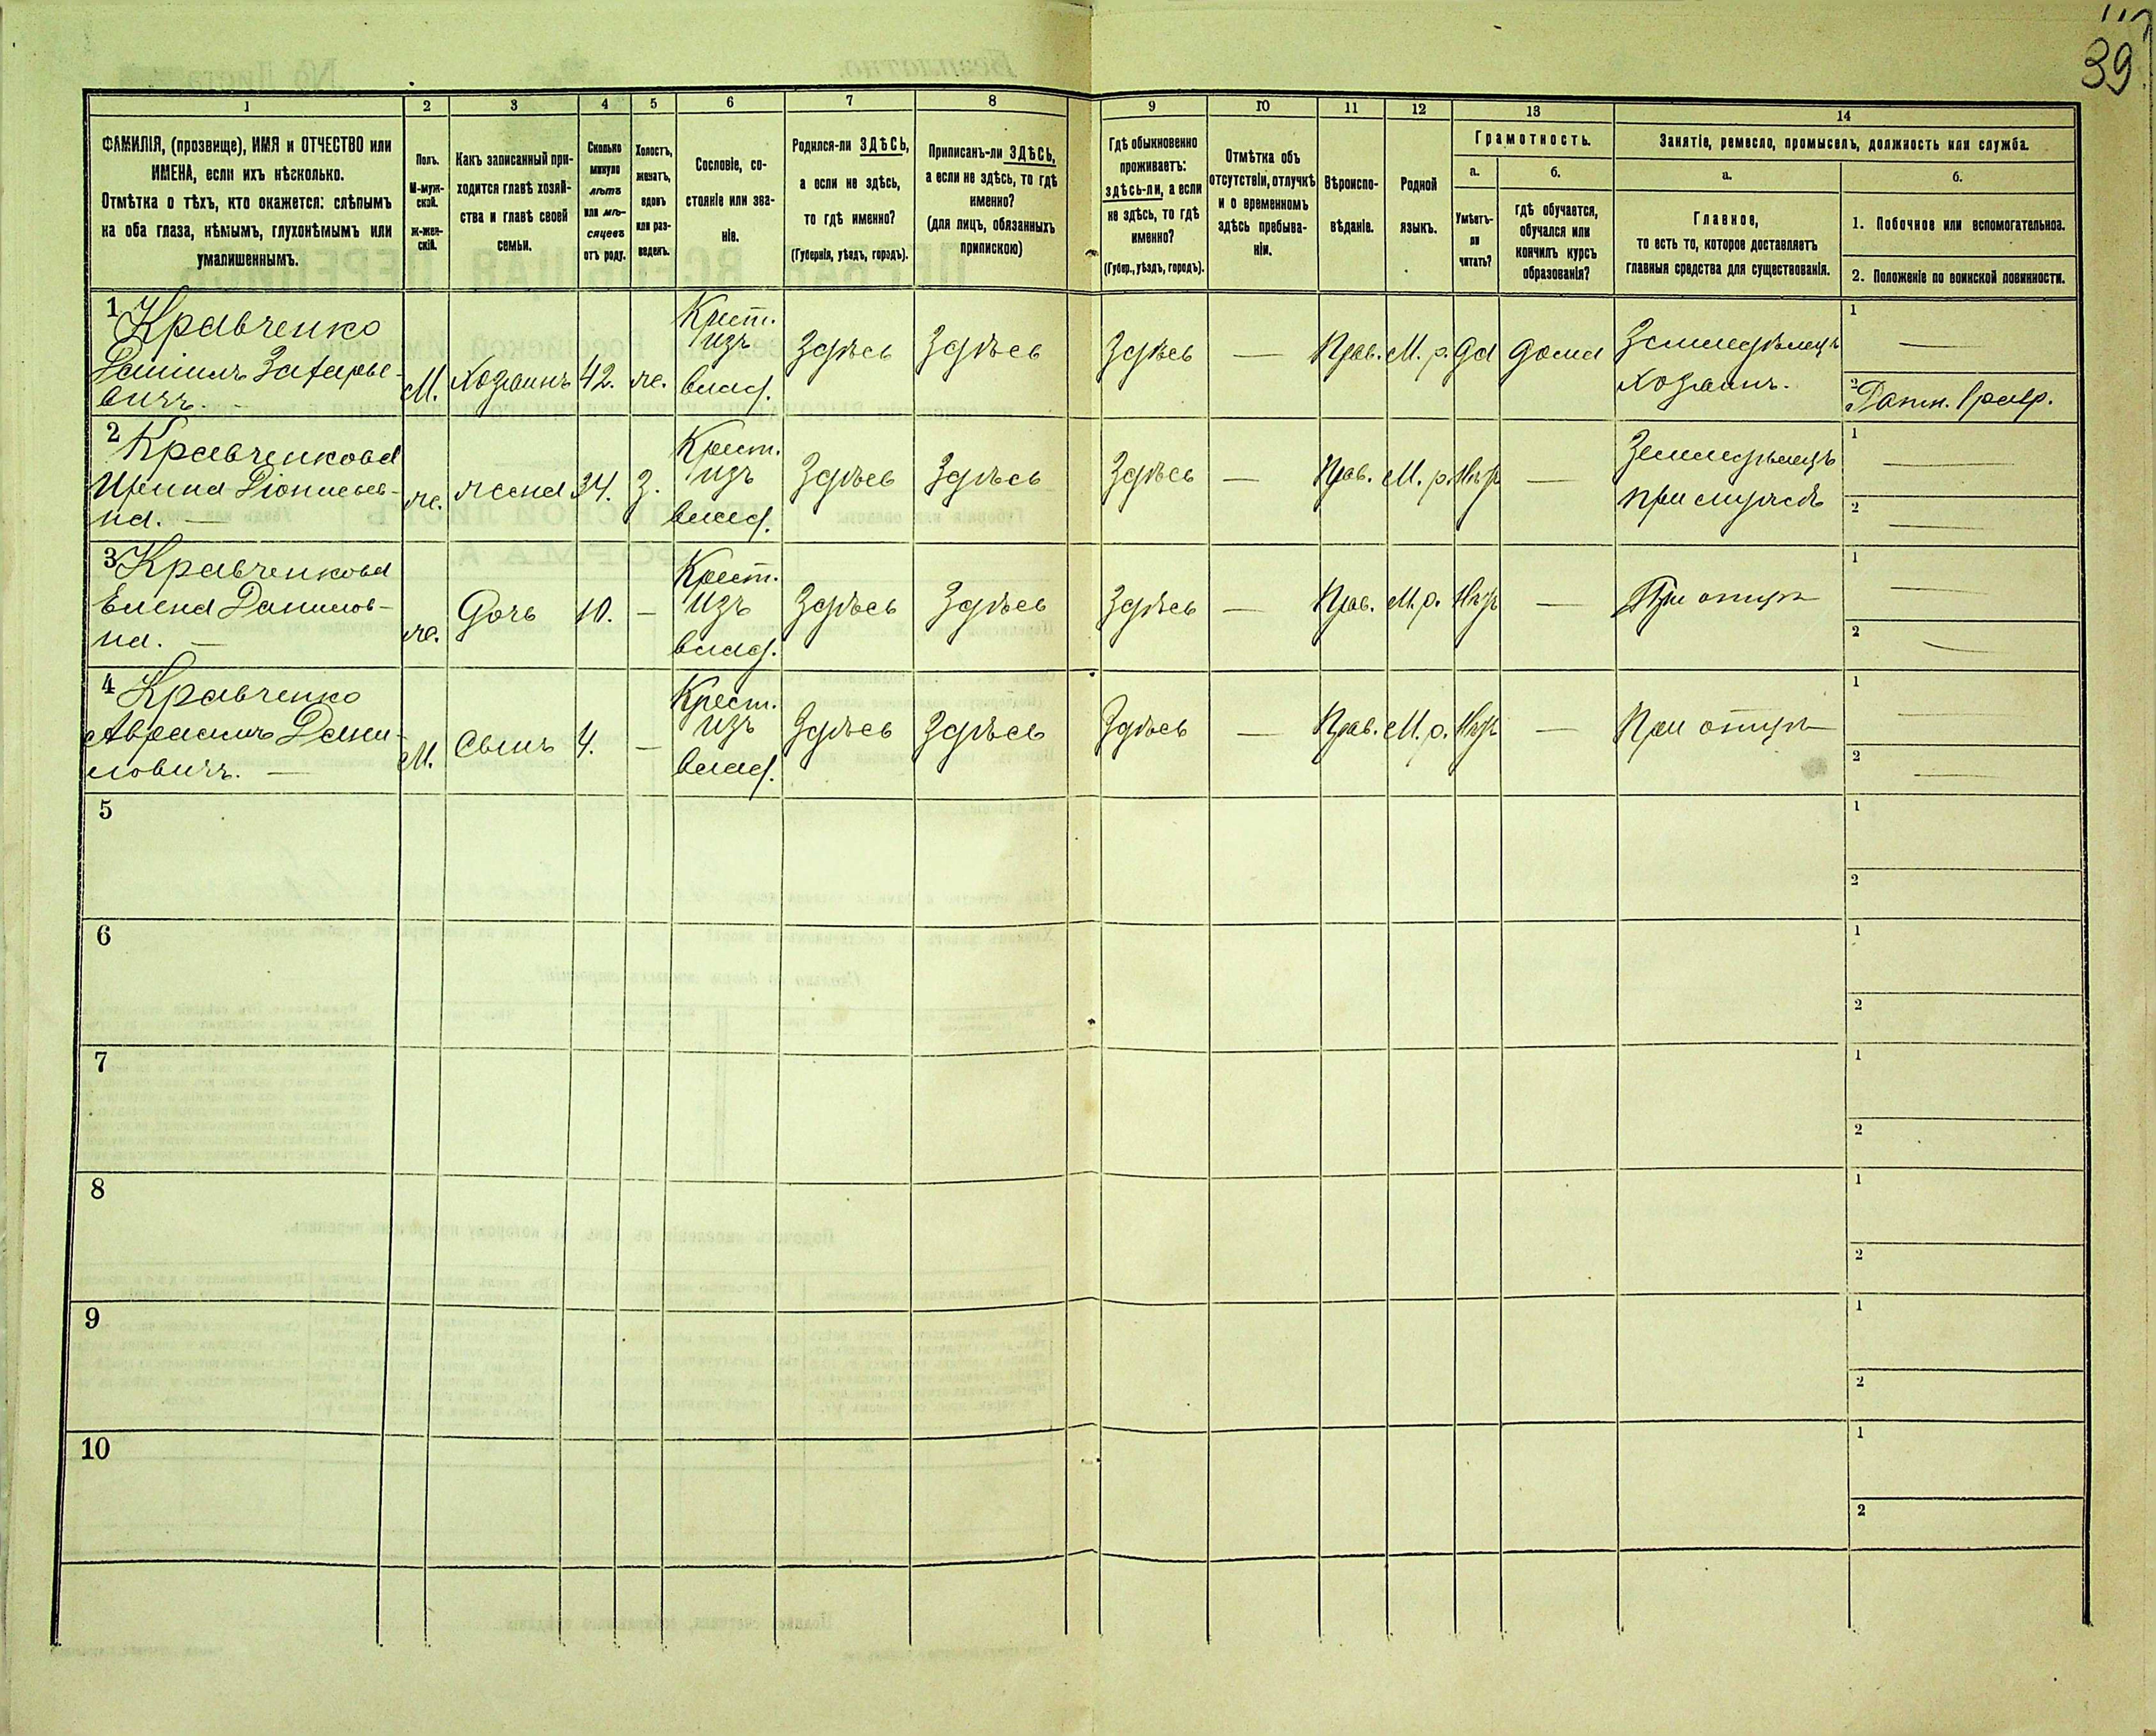 39
1 2 3 4 5 6 7 8 9 10 11 12 13 14
ФАМИЛІЯ, (прозвище), ИМЯ и ОТЧЕСТВО или
ИМЕНА, если ихъ нѣсколько.
Отмѣтка о тѣхъ, кто окажется: слѣпымъ
на оба глаза, нѣмымъ, глухонѣмымъ или
умалишеннымъ.
Полъ.
М-муж-
ской.
Ж-жен-
скій.
Какъ записанный при-
ходится главѣ хозяй-
ства и главѣ своей
семьи.
Сколько
минуло
лѣтъ
или мѣ-
сяцевъ
отъ роду.
Холостъ,
женатъ,
вдовъ
или раз-
веденъ.
Сословіе, со-
стояніе или зва-
ніе.
Родился-ли ЗДѢСЬ,
а если не здѣсь,
то гдѣ именно?
(Губернія, уѣздъ, городъ).
Приписанъ-ли ЗДѢСЬ,
а если не здѣсь, то гдѣ
именно?
(для лицъ, обязанныхъ
припискою)
Гдѣ обыкновенно
проживаетъ:
здѣсь-ли, а если
не здѣсь, то гдѣ
именно?
(Губер., уѣздъ, городъ).
Отмѣтка объ
отсутствіи, отлучкѣ
и о временномъ
здѣсь пребыва-
ніи.
Вѣроиспо-
вѣданіе.
Родной
языкъ.
Грамотность.
а.
Умѣетъ-
ли
читать?
б.
гдѣ обучается,
обучался или
кончилъ курсъ
образованія?
Занятіе, ремесло, промыселъ, должность или служба.
а.
Главное,
то есть то, которое доставляетъ
главныя средства для существованія.
б.
1. Побочное или вспомогательное.
2. Положеніе по воинской повинности.
1 Кравченко
Даніилъ Захарье-
вичъ.
М.
Хозяинъ
42.
ж.
Крест.
изъ
влад.
Здѣсь
Здѣсь
Здѣсь
—
Прав.
М. р.
Да
Дома
Земледѣлецъ
Хозяинъ.
1 —
2 Ратн. 1 разр.
2 Кравченкова
Ирина Діонисьев-
на. —
ж.
жена
34.
З.
Крест.
изъ
влад.
Здѣсь
Здѣсь
Здѣсь
—
Прав.
М. р.
Нѣтъ
—
Земледѣлецъ
при мужѣ
1 —
2 —
3 Кравченкова
Елена Данилов-
на. —
ж.
Дочь
10.
—
Крест.
изъ
влад.
Здѣсь
Здѣсь
Здѣсь
—
Прав.
М. р.
Нѣтъ
—
При отцѣ
1 —
2 —
4 Кравченко
Аврамъ Дани-
ловичъ. —
М.
Сынъ
4.
—
Крест.
изъ
влад.
Здѣсь
Здѣсь
Здѣсь
—
Прав.
М. р.
Нѣтъ
—
При отцѣ
1 —
2 —
5
1
2
6
1
2
7
1
2
8
1
2
9
1
2
10
1
2